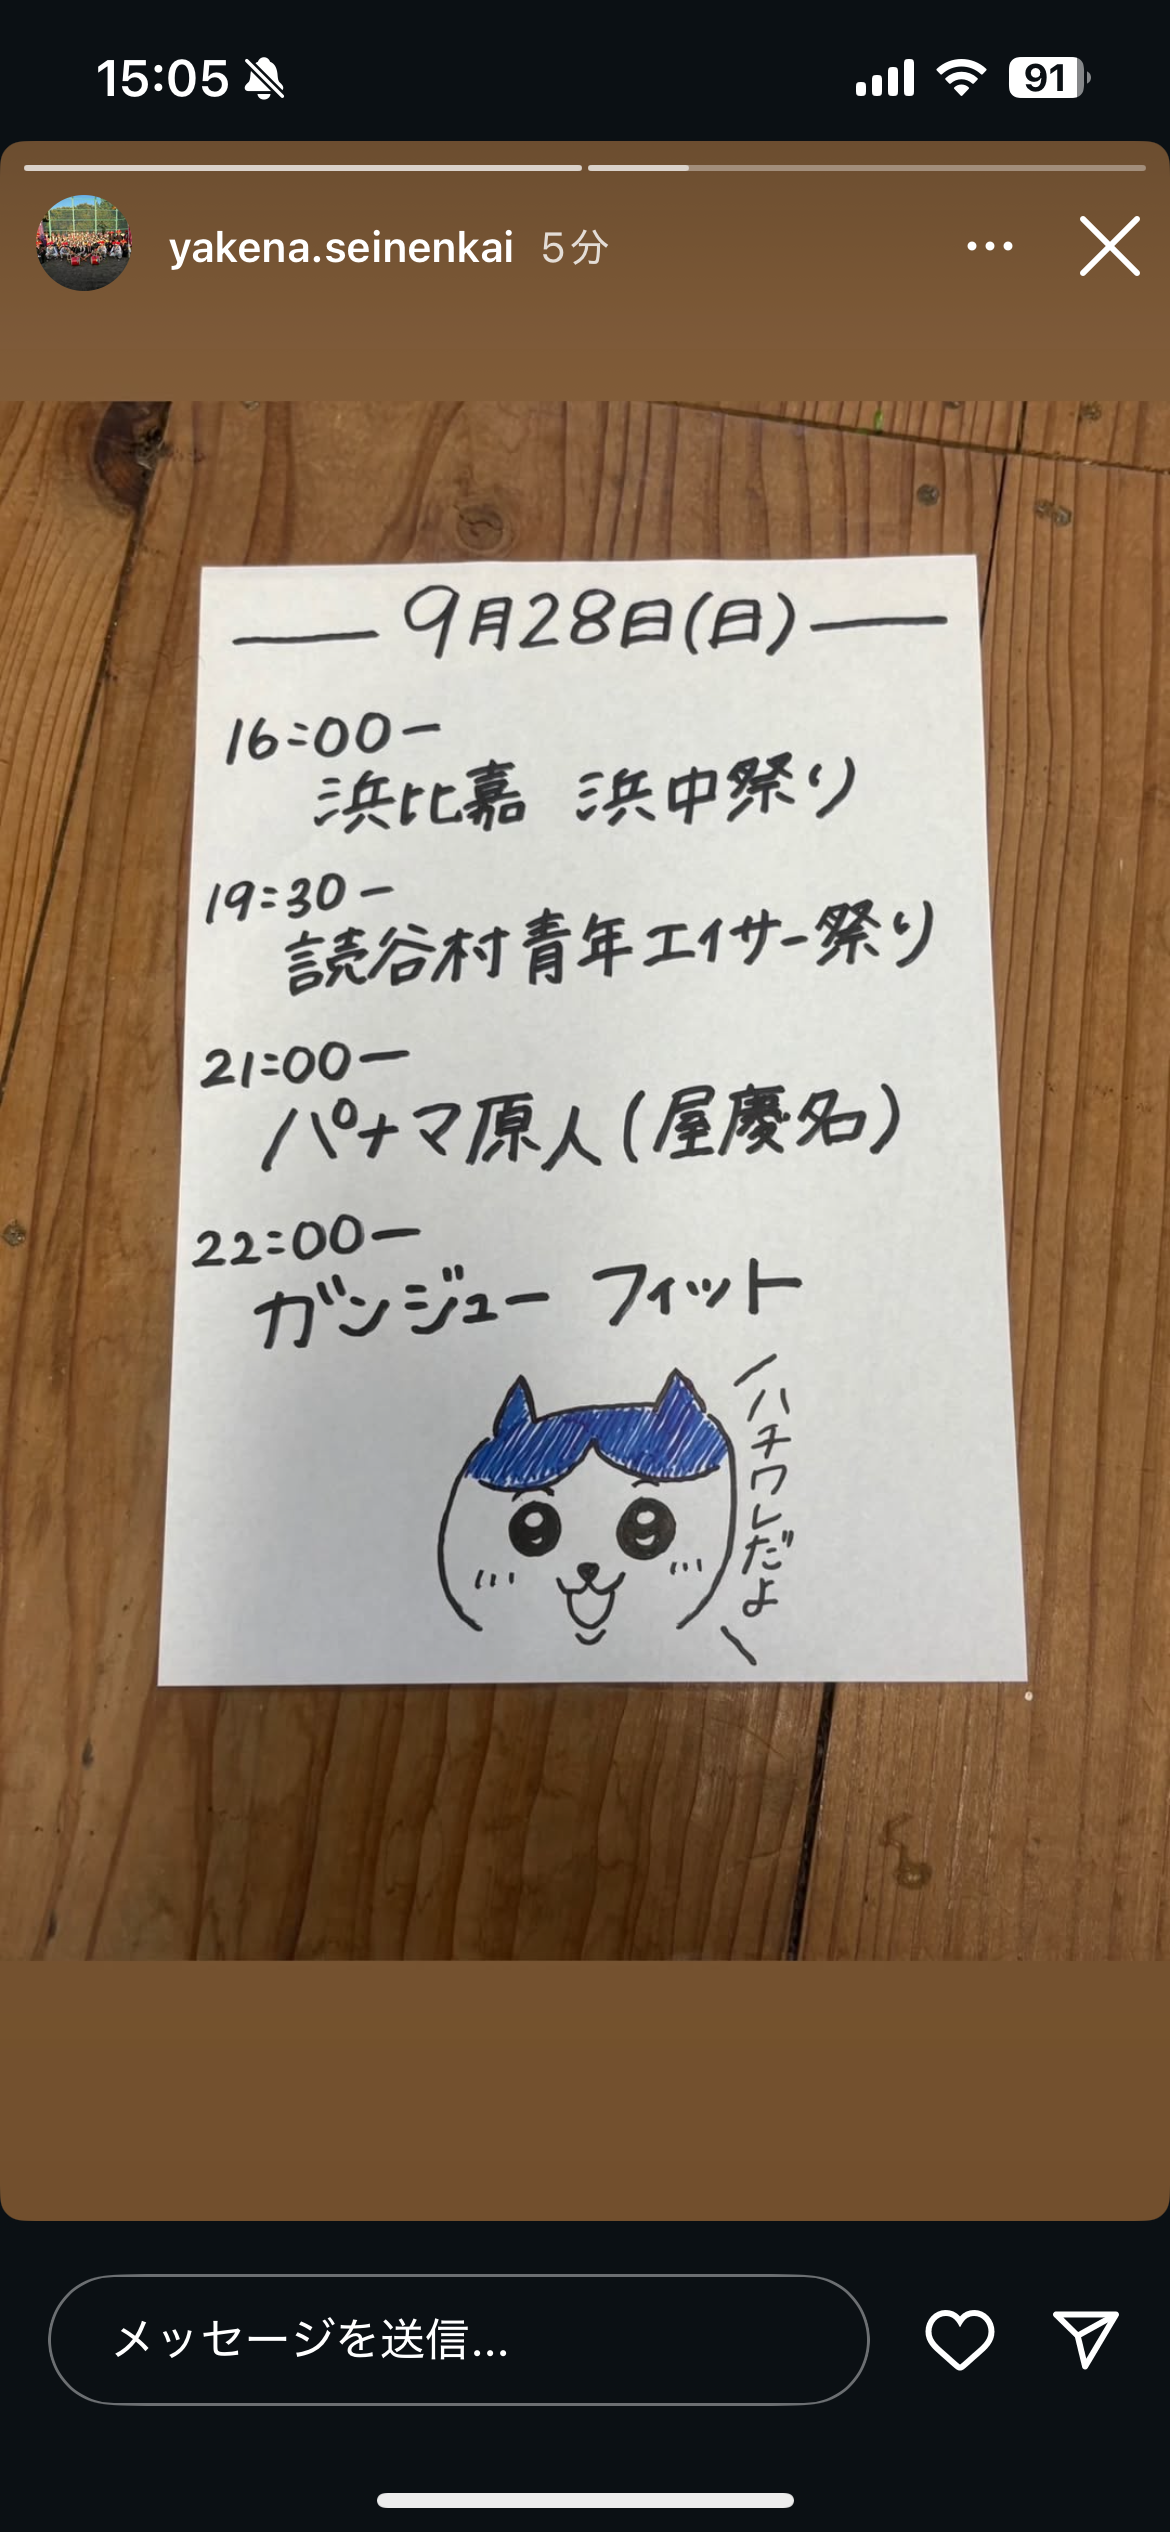 15:05
91
yakena.seinenkai 5分
9月28日(日)
16:00ー
浜比嘉 浜中祭り
19:30ー
読谷村青年エイサー祭り
21:00ー
パナマ原人(屋慶名)
22:00ー
ガンジュー フィット
ハチワレだよ
メッセージを送信...